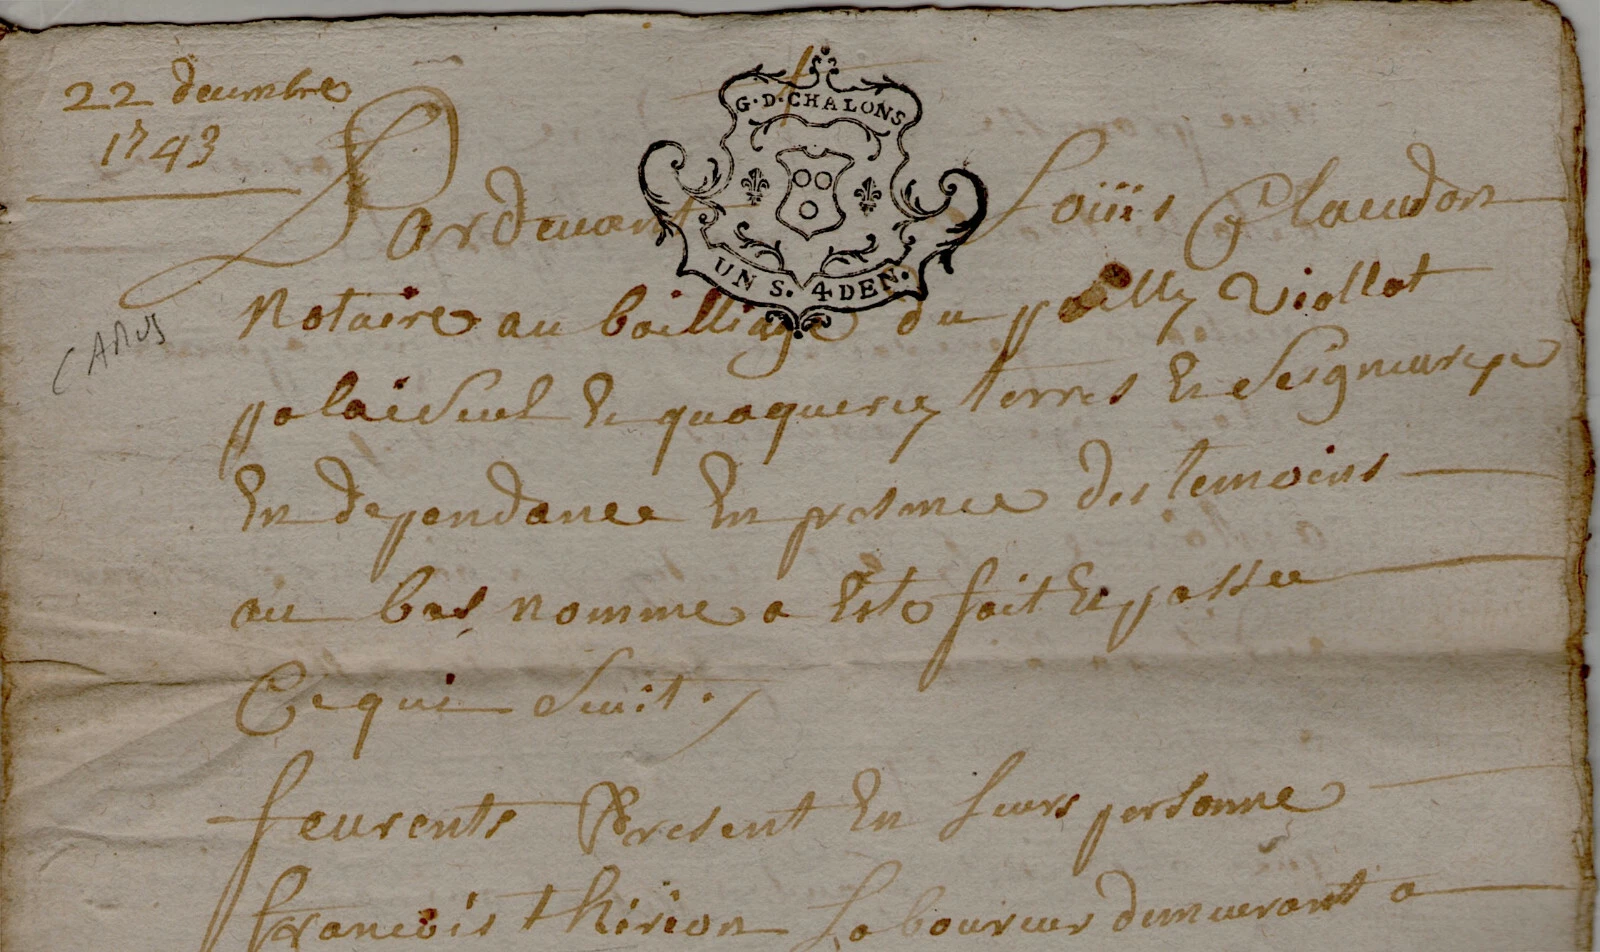 22 decembre
1743
G·D·CHALONS
UN S. 4 DEN.
CAMUS
Pardevant Loüis Claudon
Notaire au bailliage du pailly Viollot
palaiseul Et quoquerey terres Et Seigneurye
En dependance En presence des temoins
au bas nomme a Este fait Et passee
Ce qui Suit.
feurent Present En leurs personne
francois thirion Laboureur demeurant a